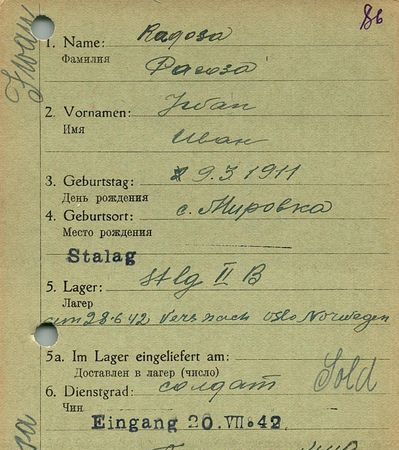 86
Iwan
1. Name: Ragosa
Фамилия Рагоза
2. Vornamen: Iwan
Имя Иван
3. Geburtstag: 9.3 1911
День рождения
4. Geburtsort: с. Мировка
Место рождения
Stalag
5. Lager: Stlg II B
Лагер
am 28.6 42 Vers nach Oslo Norwegen
5a. Im Lager eingeliefert am:
Доставлен в лагер (число)
6. Dienstgrad: солдат Sold
Чин
Eingang 20.VII.42.